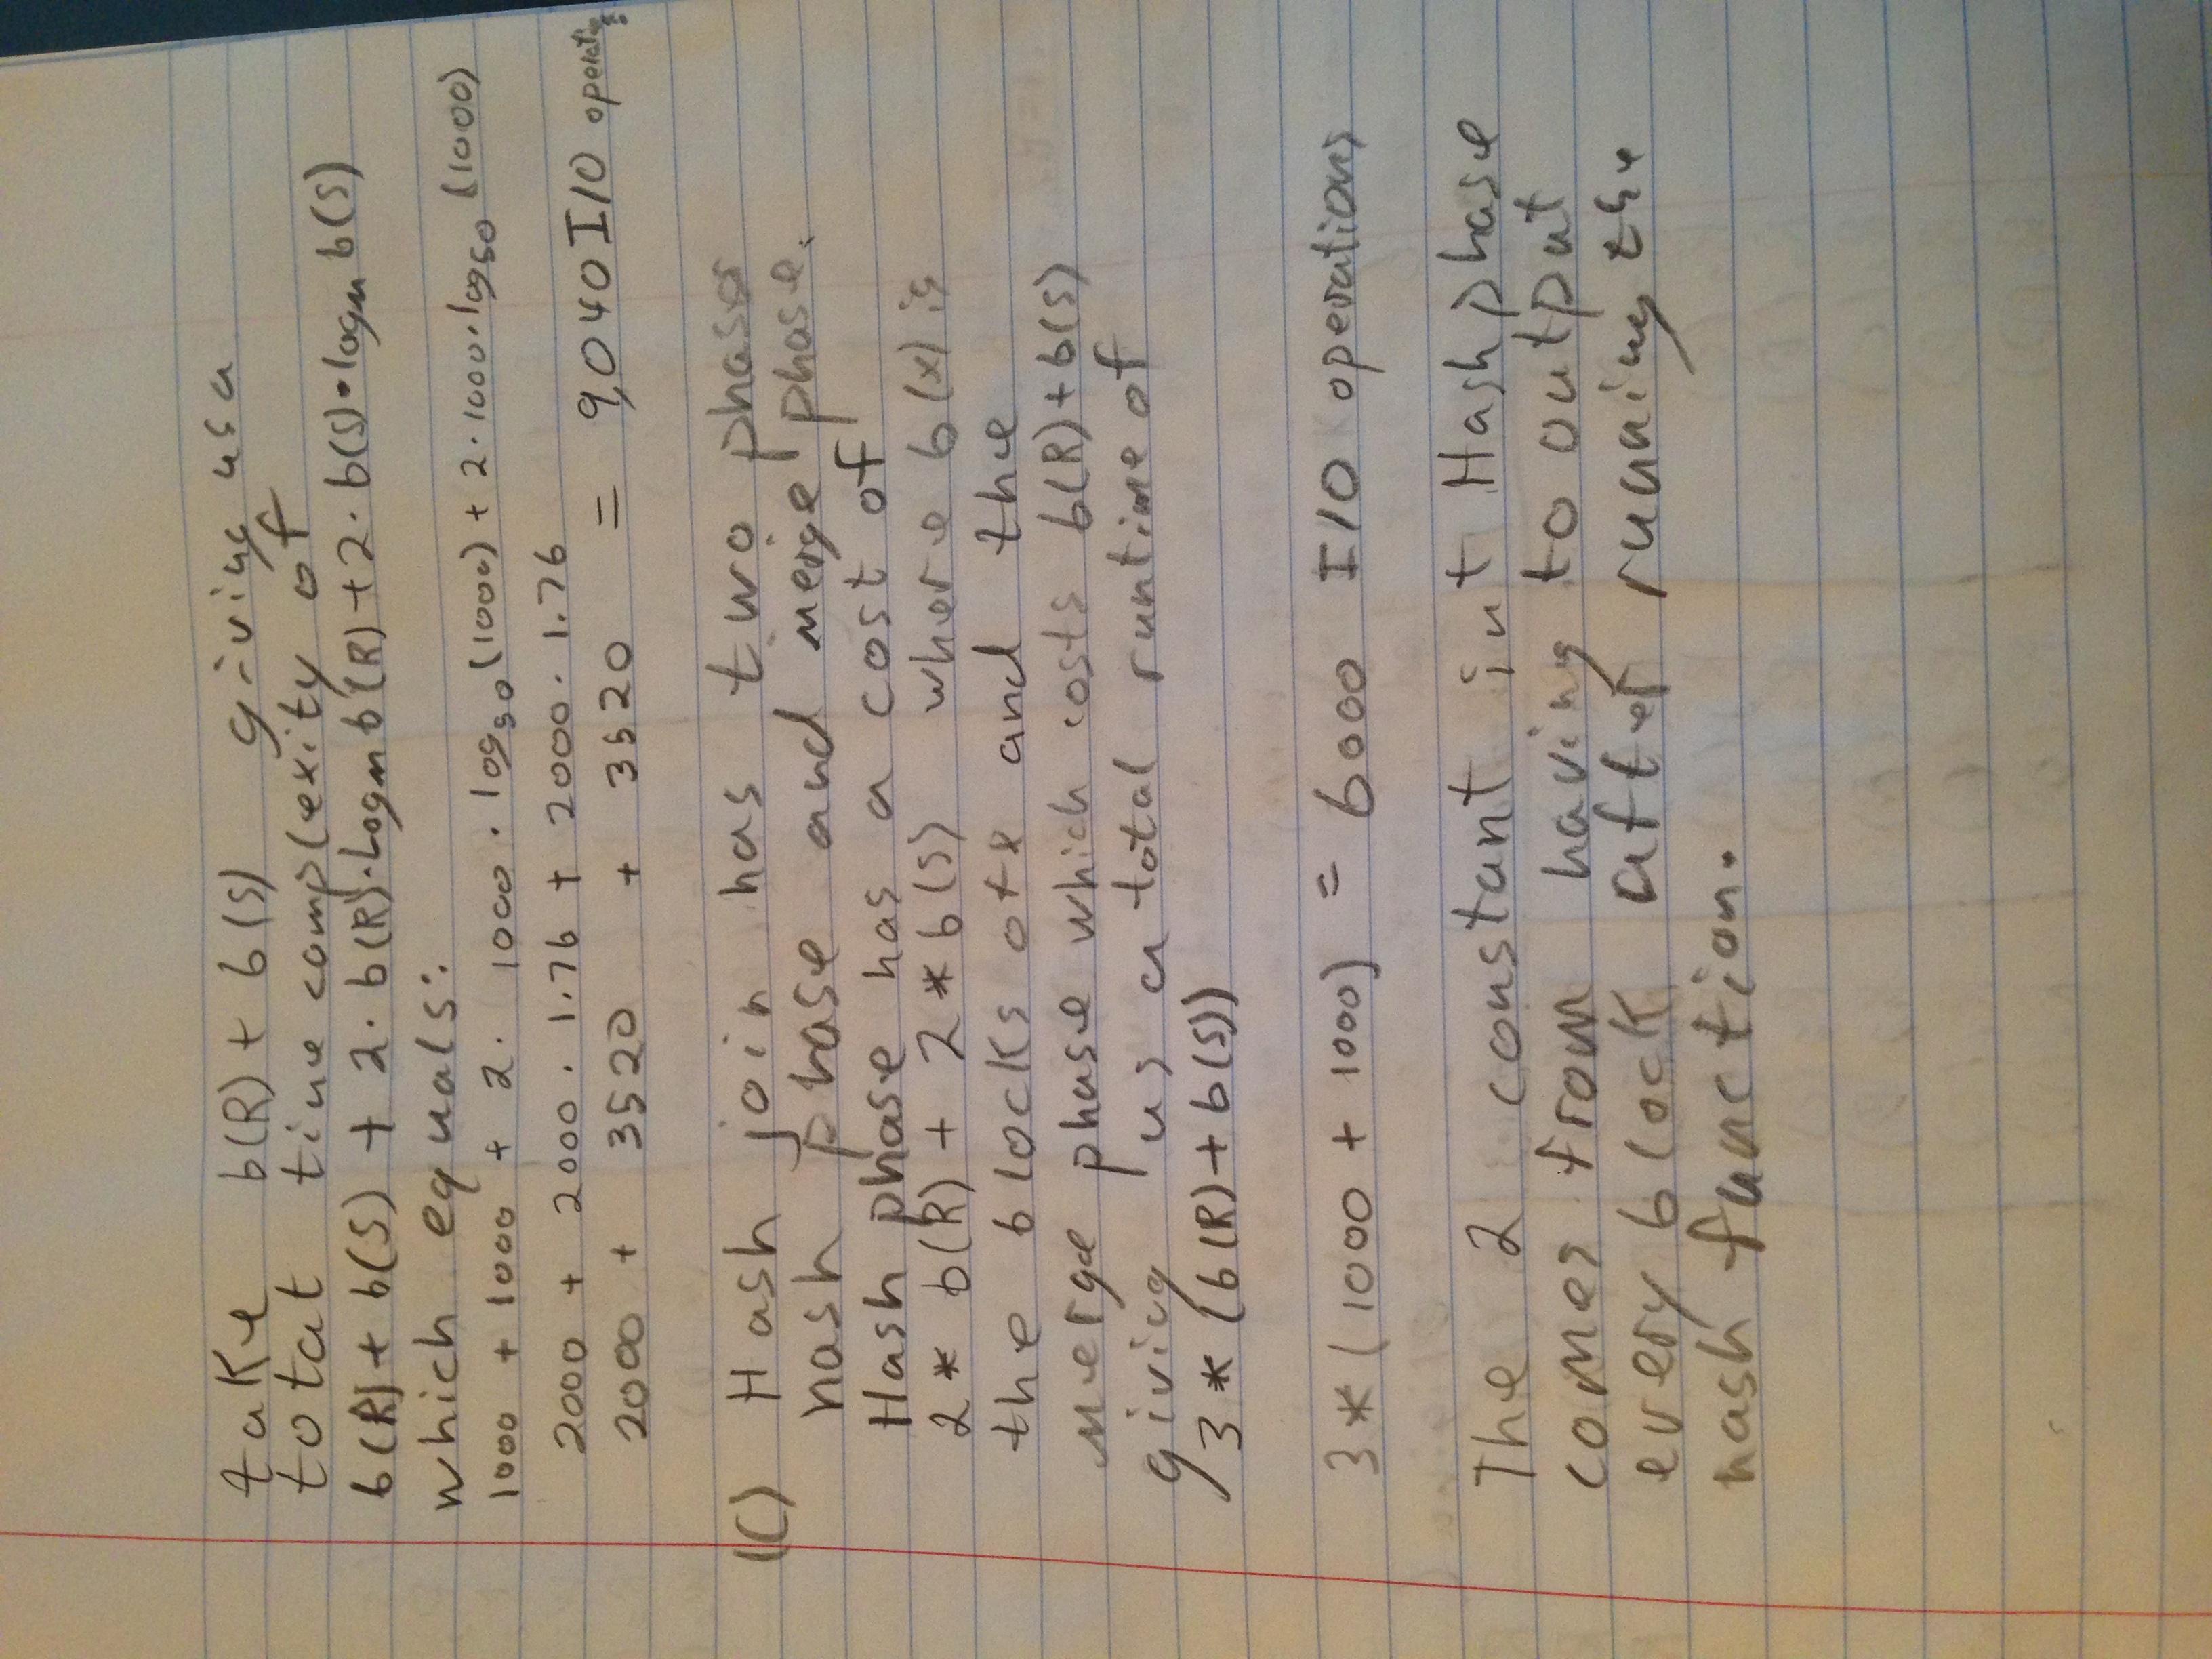 take b(R) + b(S) giving us a
total time complexity of
b(R) + b(S) + 2 · b(R) · Logm b(R) + 2 · b(S) · logm b(S)
which equals:
1000 + 1000 + 2 · 1000 · log50 (1000) + 2 · 1000 · log50 (1000)
2000 + 2000 · 1.76 + 2000 · 1.76
2000 + 3520 + 3520 = 9,040 I/O operations
(C) Hash join has two phases
hash phase and merge phase.
Hash phase has a cost of
2 * b(R) + 2 * b(S) where b(x) is
the blocks of x and the
merge phase which costs b(R) + b(S)
giving us a total runtime of
3 * (b(R) + b(S))
3 * (1000 + 1000) = 6000 I/O operations
The 2 constant int Hash phase
comes from having to output
every block after running the
hash function.